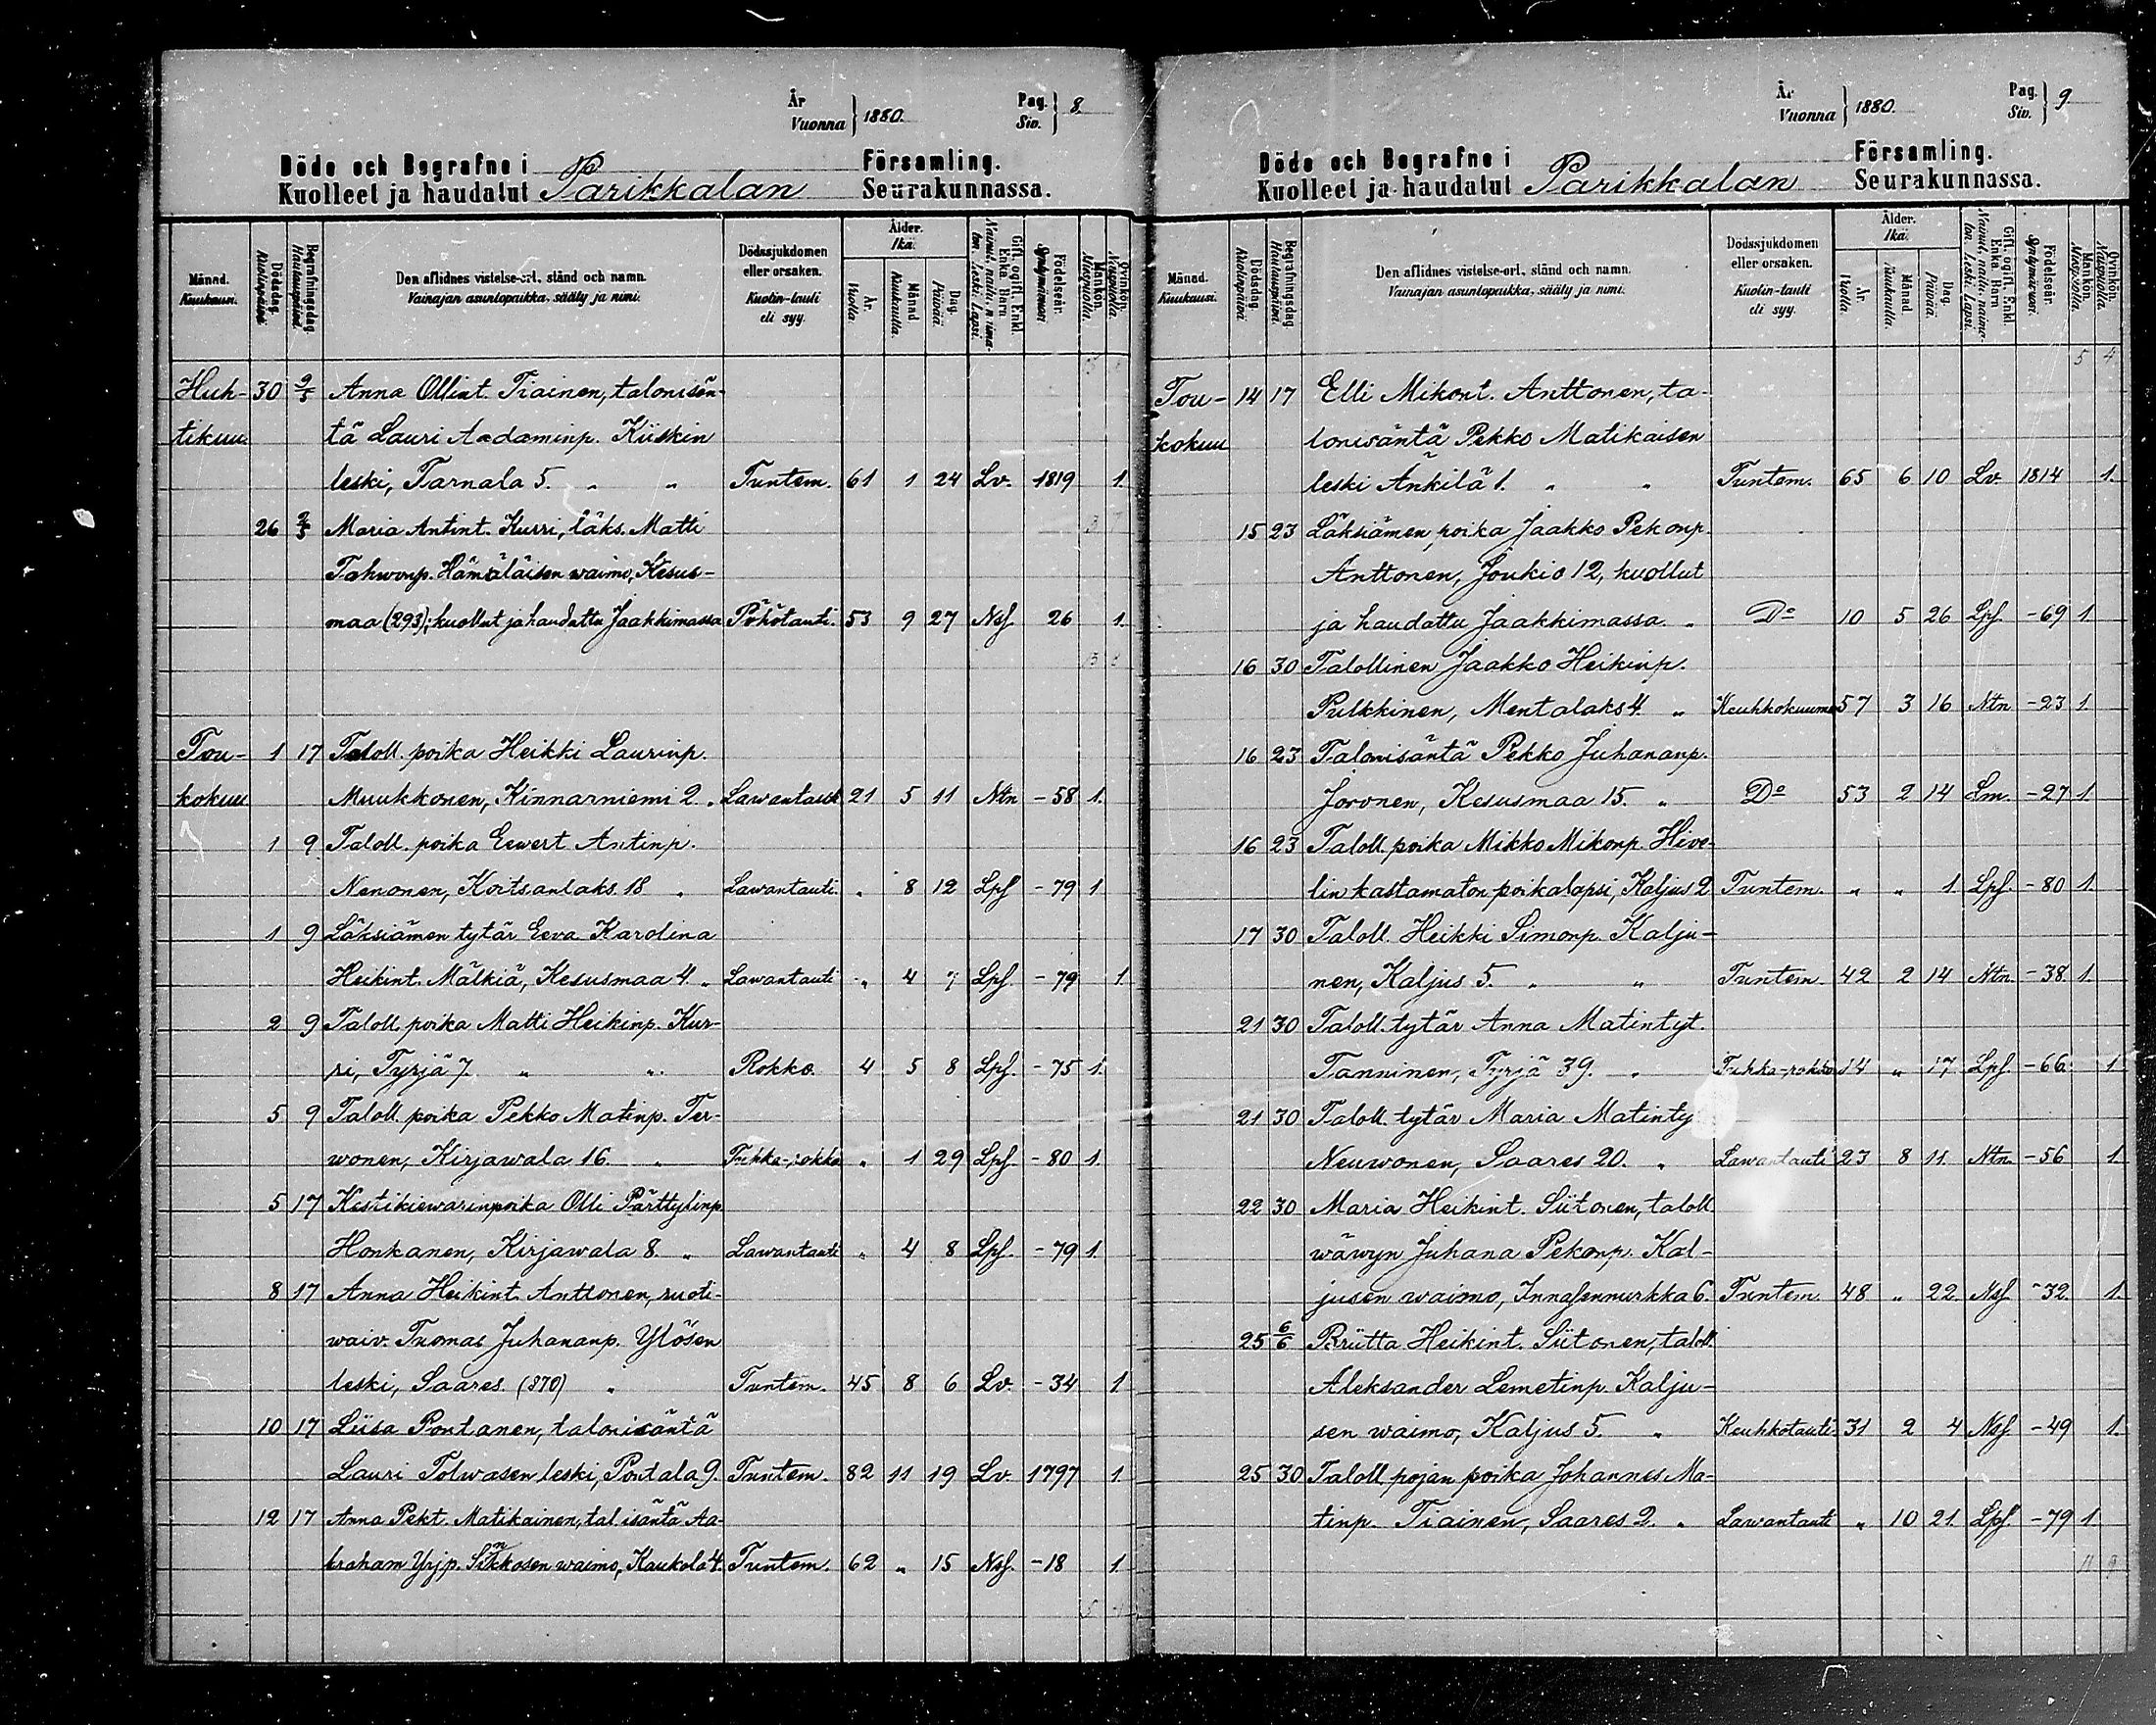 År
Vuonna } 1880.
Pag.
Siv. } 8.
Döde och Begrafne i Församling.
Kuolleet ja haudatut Parikkalan Seurakunnassa.
Månad. Kuukausi.
Dödsdag. Kuolinpäivä
Begrafningsdag. Hautauspäivä.
Den aflidnes vistelse-ort, stånd och namn.
Vainajan asuntopaikka, sääty ja nimi.
Dödssjukdomen eller orsaken.
Kuolin-tauti eli syy.
Ålder. Ikä.
År. Vuotta.
Månad. Kuukautta.
Dag. Päivää.
Gift, ogift, Enkl. Enka. Barn
Nainut, naitu, naimaton. Leski. Lapsi.
Födelseår. Syntymävuosi
Mankön. Miespuolia.
Qvinkön. Naispuolia.
Huh- 30 9/5 Anna Ollint. Tiainen, talonisän-
tikuu. tä Lauri Aadaminp. Kiiskin
leski, Tarnala 5. " " Tuntem. 61 1 24 Lv. 1819 1.
26 2/5 Maria Antint. Kurri, läks. Matti
Tahwonp. Hämäläisen waimo, Kesus-
maa (293); kuollut ja haudattu Jaakkimassa Pöhötauti. 53 9 27 Nsf. 26 1.
Tou- 1 17 Taloll. poika Heikki Laurinp.
kokuu Muukkonen, Kinnarniemi 2. " Lawantauti 21 5 11 Ntn -58 1.
1 9 Taloll. poika Eewert Antinp.
Nenonen, Koitsanlaks. 18 " Lawantauti. " 8 12 Lpf -79 1
1 9 Läksiämen tytär Eeva Karolina
Heikint. Mälkiä, Kesusmaa 4. " Lawantauti " 4 7 Lpf. -79 1.
2 9 Taloll. poika Matti Heikinp. Kur-
ri, Tyrjä 7. " " Rokko. 4 5 8 Lpf. -75 1.
5 9 Taloll. poika Pekko Matinp. Ter-
wonen, Kirjawala 16. " Tuhka-rokko " 1 29 Lpf. -80 1.
5 17 Kestikiewarinpoika Olli Pärttylinp
Honkanen, Kirjawala 8. " Lawantauti " 4 8 Lpf. -79 1.
8 17 Anna Heikint. Anttonen, ruoti-
waiv. Tuomas Juhananp. Ylösen
leski, Saares. (870) " Tuntem. 45 8 6 Lv. -34 1
10 17 Liisa Pontanen, talonisäntä
Lauri Tolwasen leski, Poutala 9. Tuntem. 82 11 19 Lv. 1797 1.
12 17 Anna Pekt. Matikainen, tal. isäntä Aa-
braham Yrjp. Sinkkosen waimo, Kaukola 4. Tuntem. 62 " 15 Nsf. -18 1.
År
Vuonna } 1880.
Pag.
Siv. } 9
Döde och Begrafne i Församling.
Kuolleet ja haudatut Parikkalan Seurakunnassa.
Månad. Kuukausi.
Dödsdag. Kuolinpäivä.
Begrafningsdag. Hautauspäivä.
Den aflidnes vistelse-ort, stånd och namn.
Vainajan asuntopaikka, sääty ja nimi.
Dödssjukdomen eller orsaken.
Kuolin-tauti eli syy.
Ålder. Ikä.
År. Vuotta.
Månad. Kuukautta.
Dag. Päivää.
Gift, ogift, Enkl. Enka. Barn
Nainut, naitu, naimaton. Leski. Lapsi.
Födelseår. Syntymävuosi.
Mankön. Miespuolia.
Qvinkön. Naispuolia.
5 4
Tou- 14 17 Elli Mikont. Anttonen, ta-
kokuu lonisäntä Pekko Matikaisen
leski Änkilä 1. " " Tuntem. 65 6 10 Lv. 1814 1.
15 23 Läksiämen poika Jaakko Pekonp.
Anttonen, Joukio 12, kuollut
ja haudattu Jaakkimassa. " Do 10 5 26 Lpf. -69 1.
16 30 Talollinen Jaakko Heikinp.
Pulkkinen, Mentalaks 4. " Keuhkokuume 57 3 16 Ntn -23 1.
16 23 Talonisäntä Pekko Juhananp.
Joronen, Kesusmaa 15. " Do 53 2 14 Lm. -27 1.
16 23 Taloll. poika Mikko Mikonp. Hive-
lin kastamaton poikalapsi, Kaljus 2 Tuntem. " " 1. Lpf. -80 1.
17 30 Taloll. Heikki Simonp. Kalju-
nen, Kaljus 5. " " Tuntem. 42 2 14 Ntn. -38. 1.
21 30 Taloll. tytär Anna Matintyt.
Tanninen, Tyrjä 39. " Tuhka-rokko 14 " 17 Lpf. -66. 1
21 30 Taloll. tytär Maria Matinty
Neuwonen, Saares 20. " Lawantauti 23 8 11. Ntn. -56 1.
22 30 Maria Heikint. Siitonen, taloll.
wäwyn Juhana Pekonp. Kal-
jusen waimo, Innasennurkka 6. Tuntem. 48 " 22. Nsf -32. 1.
25 6/6 Priitta Heikint. Siitonen, taloll.
Aleksander Lemetinp. Kalju-
sen waimo, Kaljus 5. " Keuhkotauti 31 2 4 Nsf -49 1.
25 30 Taloll. pojan poika Johannes Ma-
tinp. Tiainen, Saares 2. " Lawantauti " 10 21. Lpf. -79 1
11 9